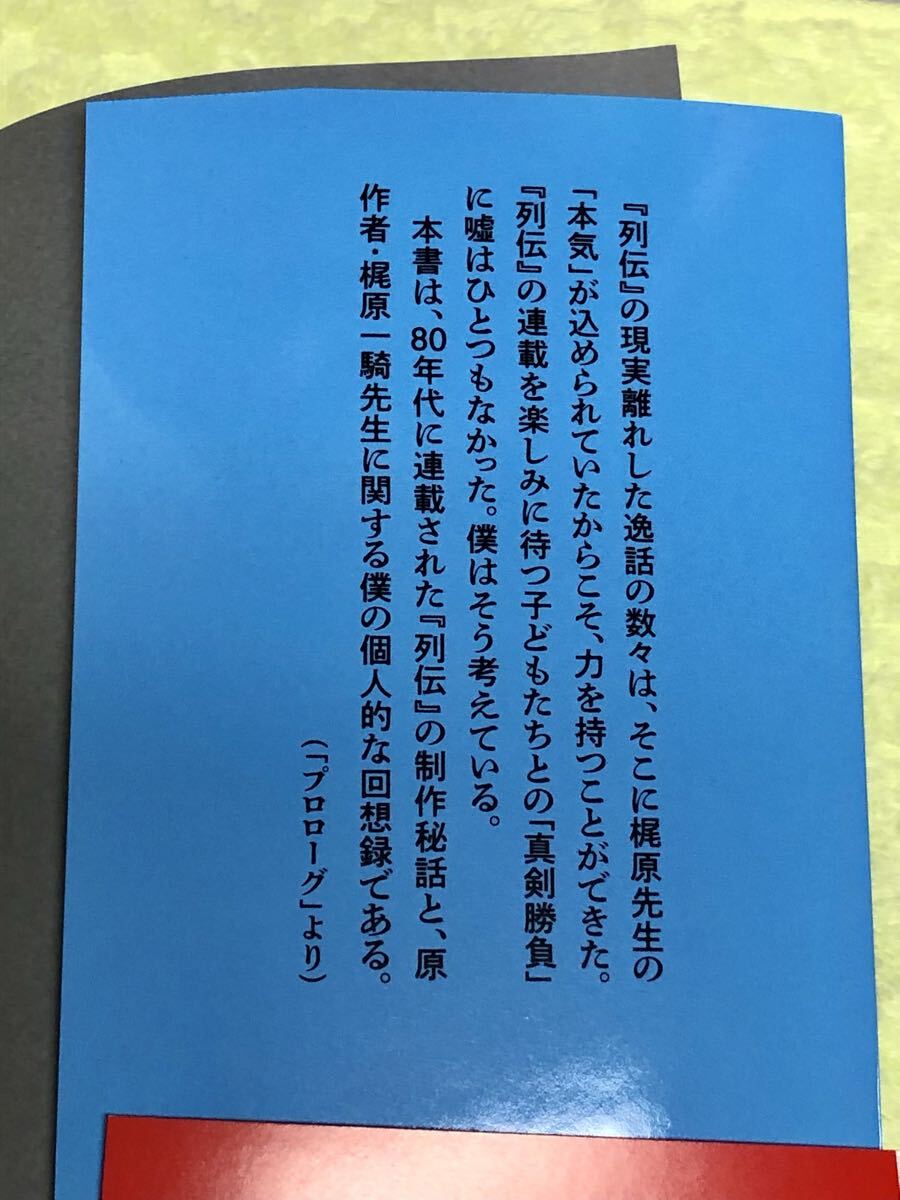 『列伝』の現実離れした逸話の数々は、そこに梶原先生の
「本気」が込められていたからこそ、力を持つことができた。
『列伝』の連載を楽しみに待つ子どもたちとの「真剣勝負」
に嘘はひとつもなかった。僕はそう考えている。
本書は、80年代に連載された『列伝』の制作秘話と、原
作者・梶原一騎先生に関する僕の個人的な回想録である。
（「プロローグ」より）